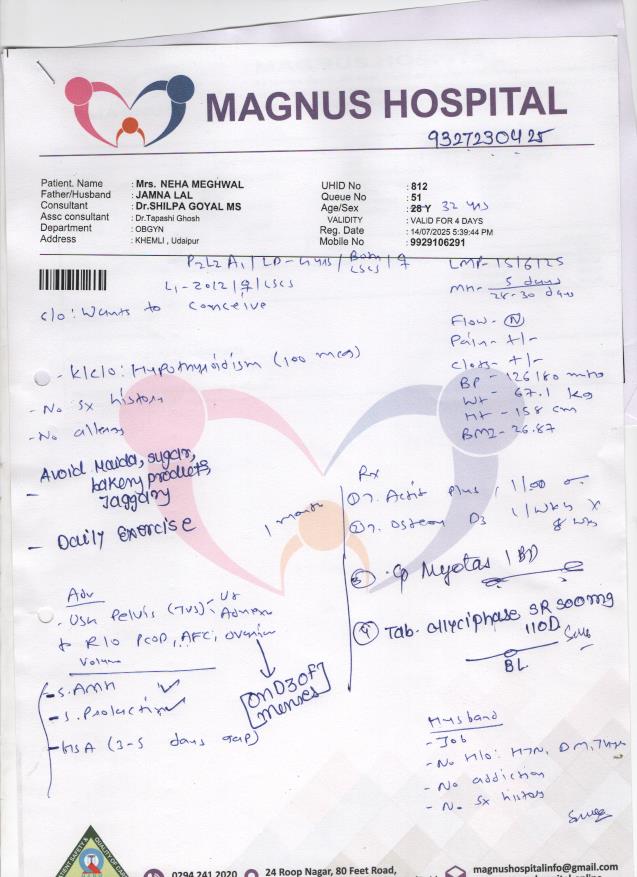 MAGNUS HOSPITAL
9327230425
Patient. Name : Mrs. NEHA MEGHWAL
Father/Husband : JAMNA LAL
Consultant : Dr.SHILPA GOYAL MS
Assc consultant : Dr.Tapashi Ghosh
Department : OBGYN
Address : KHEMLI , Udaipur
UHID No : 812
Queue No : 51
Age/Sex : 28 Y 32 yrs
VALIDITY : VALID FOR 4 DAYS
Reg. Date : 14/07/2025 5:39:44 PM
Mobile No : 9929106291
P2L2 A1 / LD - 4 yrs / Both LSCS / ♀
L1 - 2012 / ♀ / LSCS
c/o: Wants to Conceive
LMP - 15/6/25
MH - 5 days
28-30 days
Flow - N
Pain - +/-
Clots - +/-
BP - 126/80 mmHg
Wt - 67.1 kg
Ht - 158 cm
BMI - 26.87
- K/c/o: Hypothyroidism (100 mcg)
- No sx history
- No allergy
- Avoid Maida, sugar,
bakery products,
Jaggary
- Daily Exercise
1 month
Rx
① T. Actit Plus 1/OD
② T. Osteon D3 1/week x
8 wks
③ Cp Myotas 1 BD
④ Tab. Glyciphase SR 500mg
1 OD
BL
Adv
. USG Pelvis (TVS) - Ut
Adnexa
to R/O PCOD, AFC, ovarian
volume
on D3 of
Menses
- S. AMH ✓
- S. Prolactin ✓
- HSA (3-5 days gap)
Husband
- Job
- No H/o: HTN, DM, Thy
- No addiction
- No sx history
0294 241 2020
24 Roop Nagar, 80 Feet Road,
magnushospitalinfo@gmail.com